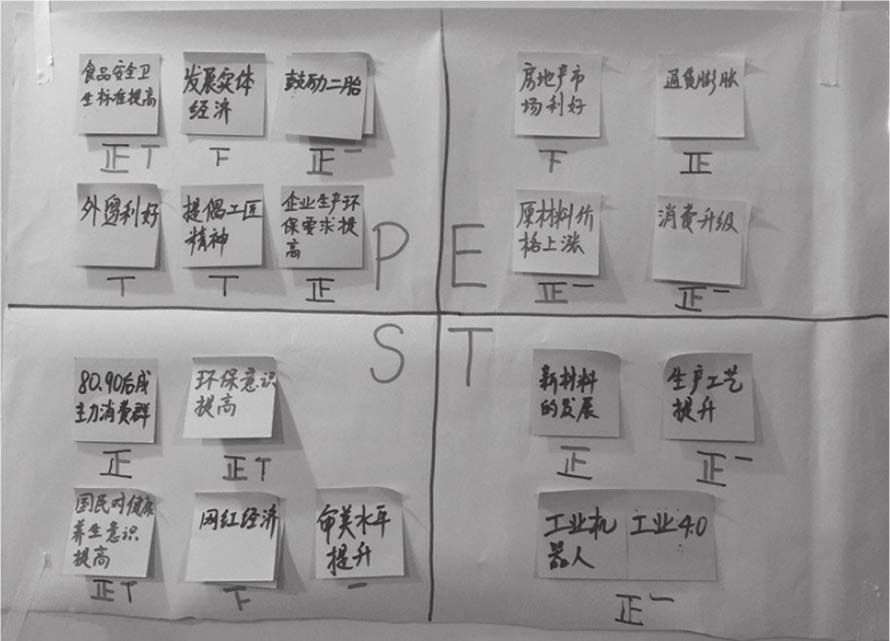 食品安全卫
生标准提高
正丅
发展实体
经济
下
鼓励二胎
正一
外贸利好
丅
提倡工匠
精神
丅
企业生产环
保要求提
高
正
P
房地产市
场利好
下
通货膨胀
正
原材料价
格上涨
正一
消费升级
正一
E
80.90后成
主力消费群
正
环保意识
提高
正丅
国民对健康
养生意识
提高
正丅
网红经济
下
审美水平
提升
一
S
T
新材料
的发展
正
生产工艺
提升
正一
工业机
器人
工业4.0
正一